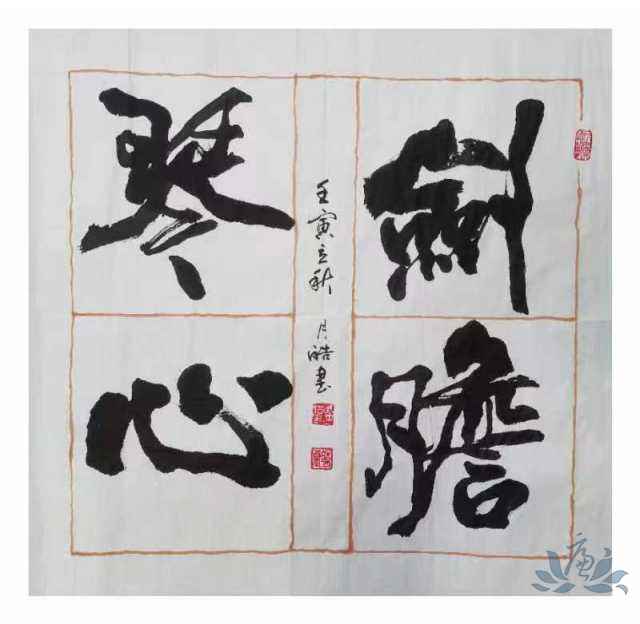 劍膽
琴心
壬寅立秋 月皓書